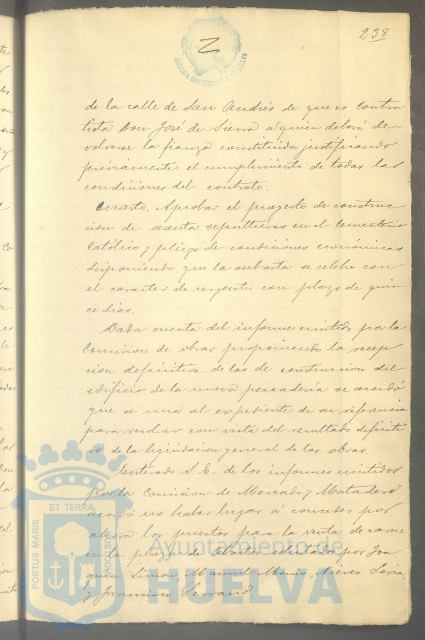 238
de la calle de San Andrés de que es Contra
tista Don José de Sierra á quien deberá de
volverse la fianza constituida justificando
préviamente el cumplimiento de todas las
condiciones del contrato.
Cuarto. Aprobar el proyecto de construc
cion de sesenta sepulturas en el Cementerio
Católico y pliego de condiciones económicas
disponiendo que la subasta se celebre con
el caracter de urgente con plazo de quin
ce dias.
Dada cuenta del informe emitido por la
Comision de obras proponiendo la recep
cion definitiva de las de construccion del
edificio de la nueva pescaderia se acordó
que se una al expediente de su referencia
para resolver con vista del resultado definiti
vo de la liquidacion general de las obras.
Enterado S. E. de los informes emitidos
por la Comision de Mercado y Matadero
acordó no haber lugar á conceder por
ahora los puestos para la venta de carne
en la plaza de Abastos solicitados por Joa
quin Limon, Manuel, Nieves
y Francisco Serrano
PORTUS MARIS
ET TERRA
Ayuntamiento de
HUELVA